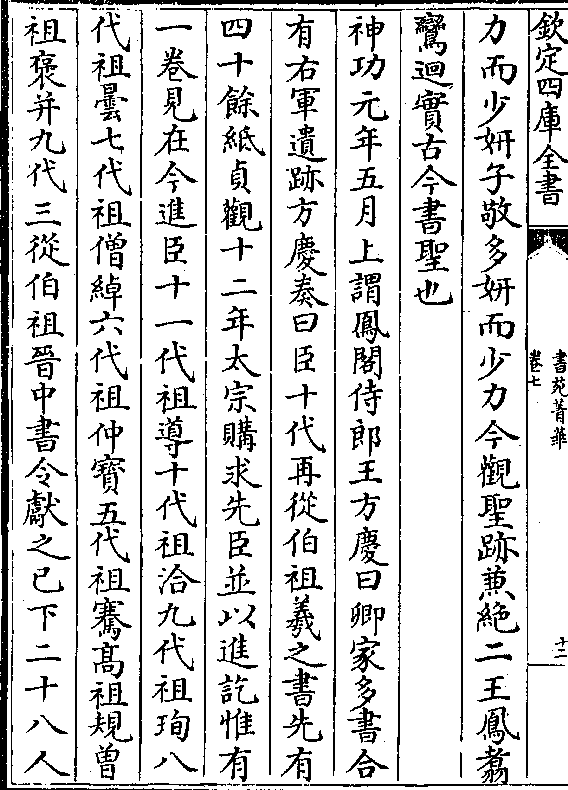 欽定四庫全書
書苑菁華
卷七
十二
力而少妍子敬多妍而少力今觀聖跡兼絶二王鳳翥
鸞迴實古今書聖也
神功元年五月上謂鳳閣侍郎王方慶曰卿家多書合
有右軍遺跡方慶奏曰臣十代再從伯祖羲之書先有
四十餘紙貞觀十二年太宗購求先臣並以進訖惟有
一卷見在今進臣十一代祖導十代祖洽九代祖珣八
代祖曇七代祖僧綽六代祖仲寳五代祖騫髙祖規曽
祖褒并九代三從伯祖晉中書令獻之已下二十八人